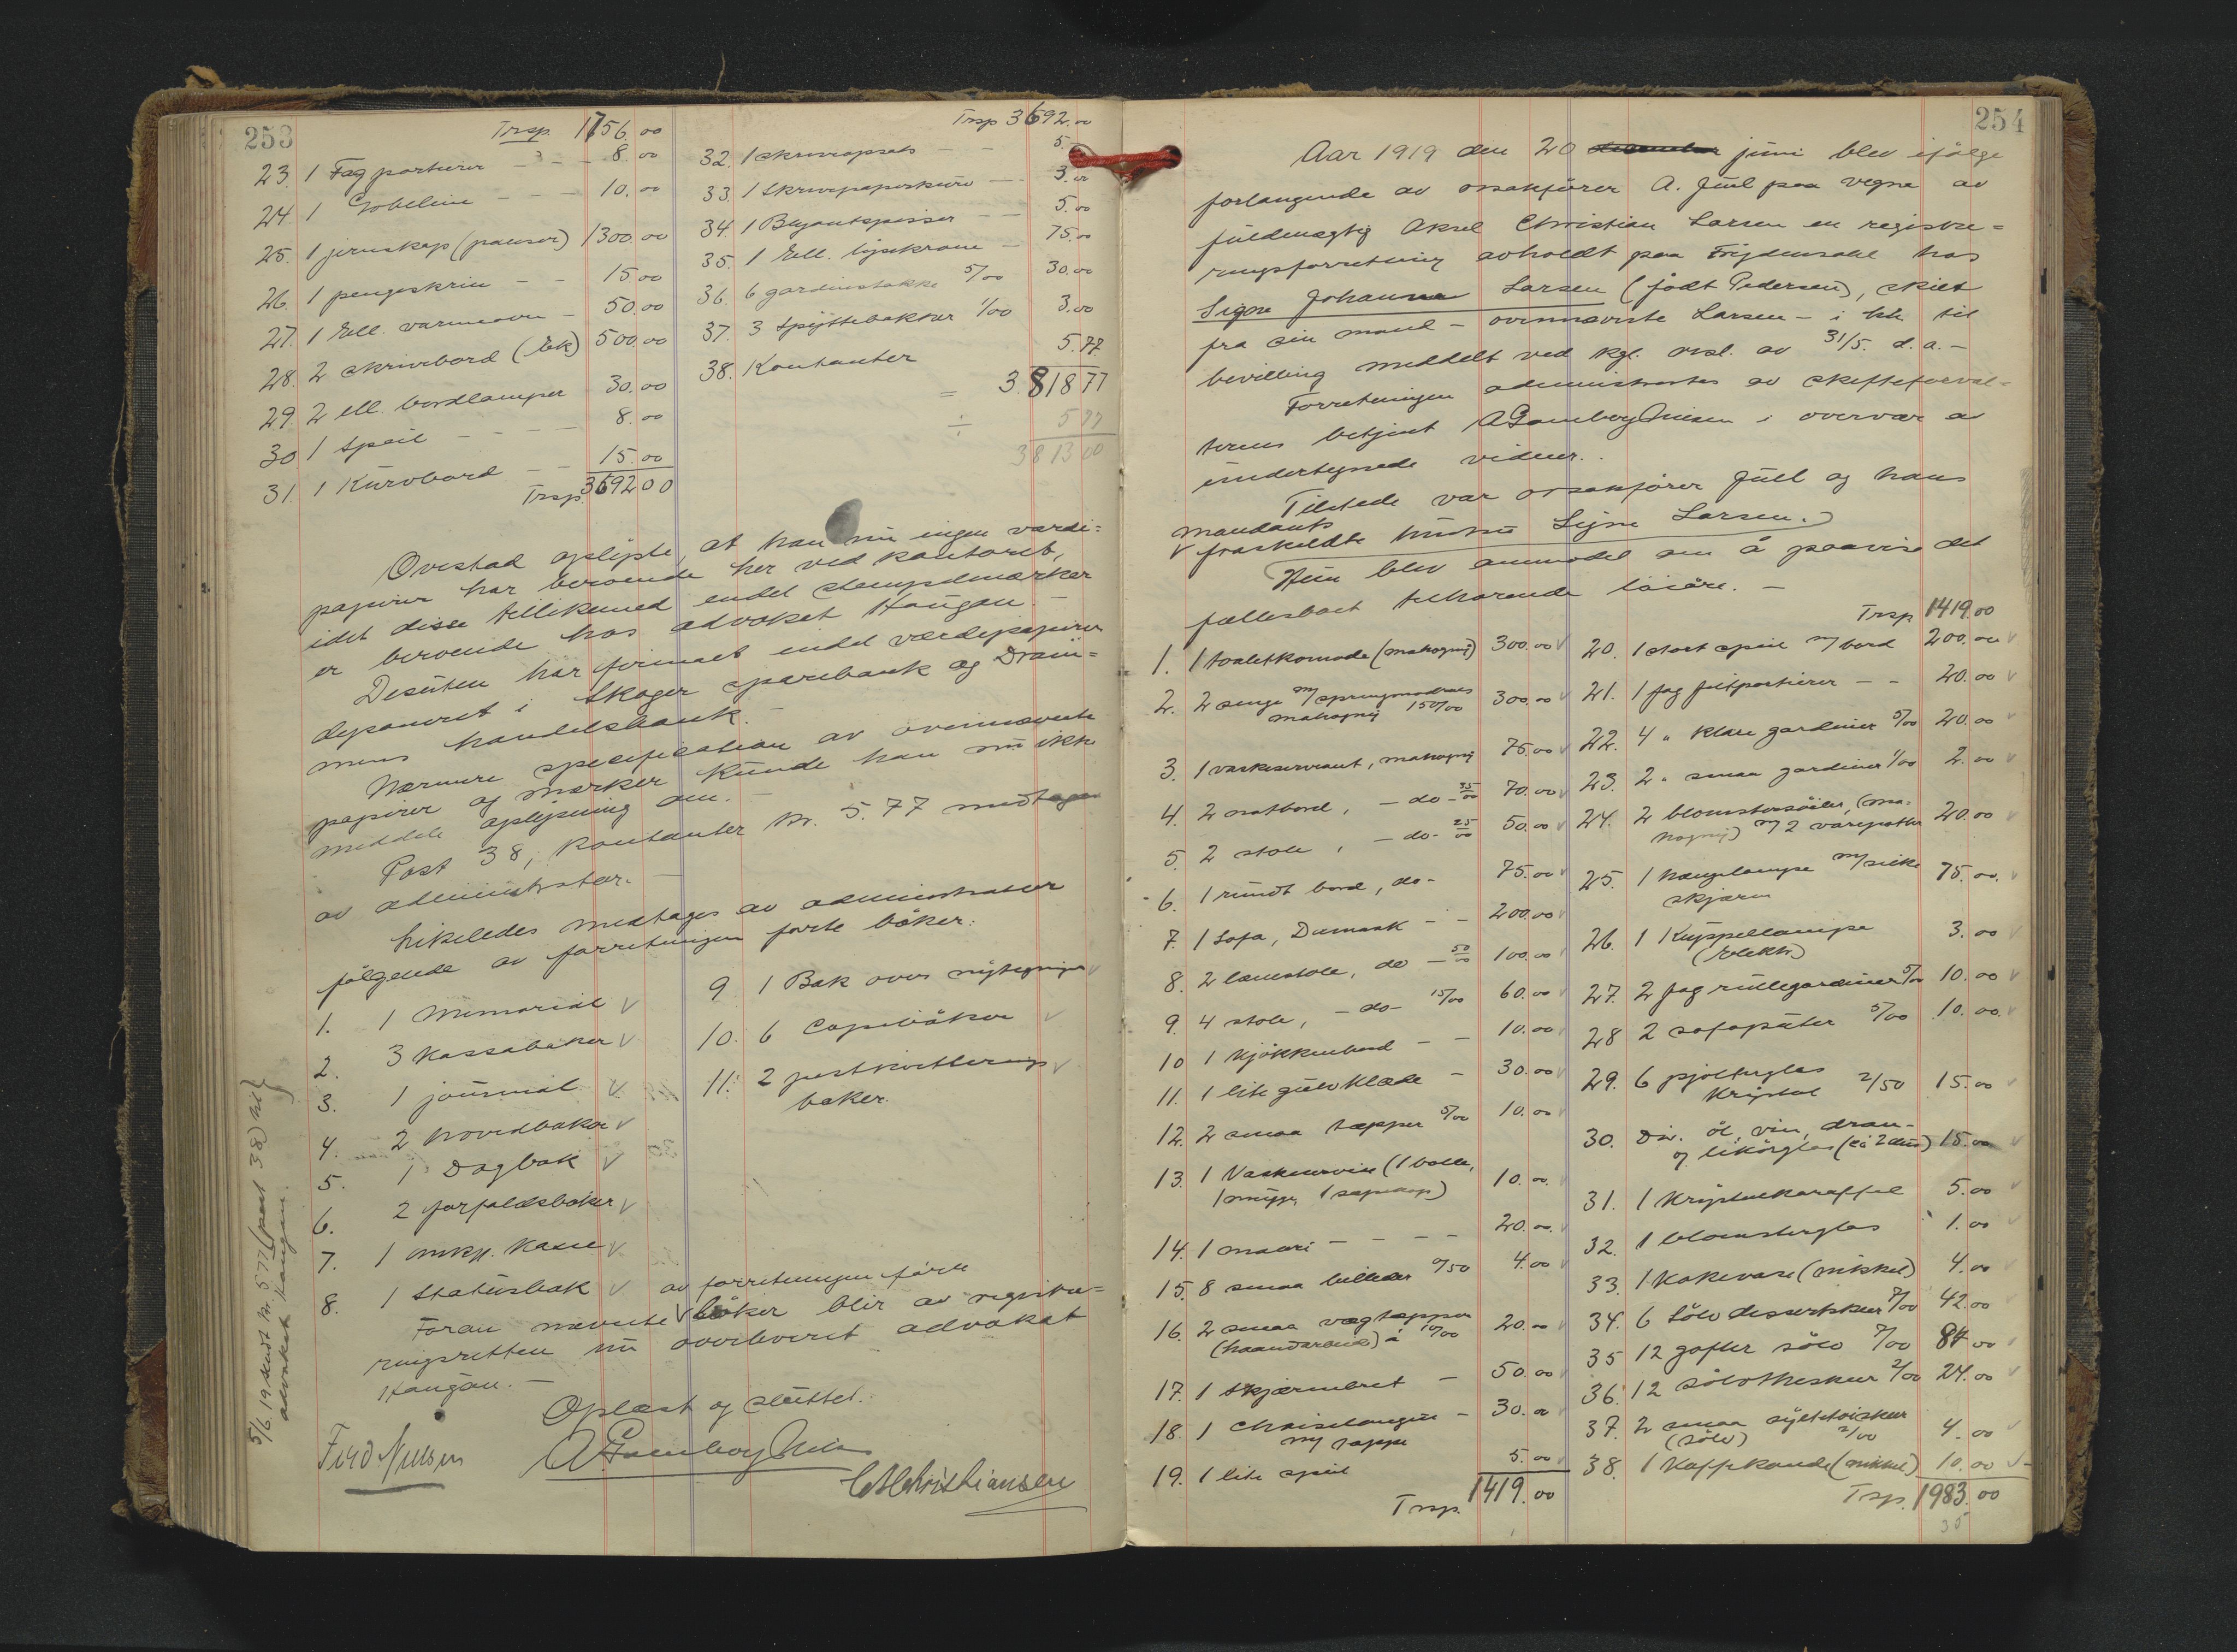 253
Trsp. 1756.00
23. 1 Fag portierer - - - 8.00
24. 1 Gobelin - - - 10.00
25. 1 jernskap (panser) 1300.00
26. 1 pengeskrin - - 15.00
27. 1 Ell. varmeovn - 50.00
28. 2 skrivebord (Ek) 500.00
29. 2 ell. bordlamper 30.00
30 1 speil - - - - 8.00
31. 1 Kurvbord - - 15.00
Trsp. 3692 00
Trsp 3692.00
32. 1 skriveopsats - - 5.-
33. 1 Skrivepapirkurv - 3.00
34. 1 Blyantspisser - - 5.00
35. 1 Ell. lysekrone - 75.00
36. 6 gardinstokke 5/00 30.00
37. 3 Spyttebakker 1/00 3.00
38. Kontanter 5.77
= 3.818 77
÷ 5 77
3813 00
Ovestad oplyste, at han nu ingen værdi=
papirer har beroende her ved kontoret,
idet disse tillikemed endel stempelmærker
er beroende hos advokat Haugan. -
Desuten har firmaet endel værdipapirer
deponeret i Skoger sparebank og Dram=
mens handelsbank. -
Nærmere specifikation av ovennævnte
papirer og mærker kunde han nu ikke
meddele oplysning om. -
Post 38, kontanter kr. 5.77 medtages
av administrator. -
Likeledes medtages av administrator
følgende av forretningen førte bøker:
1. 1 Memorial
2. 3 Kassabøker
3. 1 journal
4. 2 hovedbøker
5. 1 Dagbok
6. 2 forfaldsbøker
7. 1 omkp. Kasse
8. 1 Statusbok
9 1 Bok over nytegninger
10. 6 Copibøker
11. 2 postkvitterings
bøker.
av forretningen førte
Foran nævnte bøker blir av registre=
ringsretten nu overleveret advokat
Haugan. -
Oplæst og sluttet.
Ferd Nilsen
A Gamborg Nilsen
C M Christiansen
5/6. 19 sendt kr. 5.77 (post 38) til
advokat Haugan.
254
Aar 1919 den 20 juni blev ifølge
forlangende av o.r.sakfører A. Juul paa vegne av
fuldmægtig Aksel Christian Larsen en registre=
ringsforretning avholdt paa Frydensdal hos
Signe Johanne Larsen (født Pedersen), skilt
fra sin mand - ovennævnte Larsen - i h.h. til
bevilling meddelt ved kgl. resl. av 31/5. d.a. -
Forretningen administrertes av skifteforval=
terens betjent A Gamborg Nilsen i overvær av
undertegnede vidner.
Tilstede var o.r.sakfører Juul og hans
mandants
fraskildte hustru Signe Larsen.
Hun blev anmodet om å paavise det
fællesboet tilhørende løsøre. -
1. 1 toaletkomode (mahogny) 300.00
2. 2 senge m/springmadrass
mahogny 150/00 300.00
3. 1 vaskeservant, mahogny 75.00
4. 2 natbord, - do - 35/00 70.00
5 2 stole, - do - 25/00 50.00
6. 1 rundt bord, do - 75.00
7. 1 Sofa, Damask - - 200.00
8. 2 lænstole, do - 50/00 100.00
9. 4 stole, - do - 15/00 60.00
10 1 kjøkkenbord - - 10.00
11. 1 lite gulvklæde - 30.00
12. 2 smaa tepper 5/00 10.00
13. 1 Vaskeservise (1 bolle,
1 mugge, 1 sæpekop) 10.00
14. 1 maleri - - - - 20.00
15. 8 smaa billeder 0/50 4.00
16. 2 smaa vægtepper
(haandarbeid) à 10/00 20.00
17. 1 Skjermbret - 50.00
18. 1 Chaiselongue - 30.00
m/ teppe
19. 1 lite speil 5.00
Trsp. 1419.00
Trsp 1419.00
20. 1 stort speil m/ bord 200.00
21. 1 fag filtportierer - - 20.00
22. 4 " klare gardiner 5/00 20.00
23. 2 " smaa gardiner 1/00 2.00
24. 2 blomstersøiler, (ma=
hogny) m/ 2 varepotter 20.00
25. 1 hængelampe m/silke
skjærm 75.00
26. 1 Kuppellampe
(elektr.) 3.00
27. 2 fag rullegardiner 5/00 10.00
28 2 sofaputer 5/00 10.00
29. 6 pjolterglas
Krystal 2/50 15.00
30. Div. øl, vin, dram-
og likørglas (ca 2 dus) 15.00
31. 1 Krystalkaraffel 5.00
32. 1 blomsterglas 1.00
33. 1 Kakevase (nikkel) 4.00
34. 6 Sølv dessertskeer 7/00 42.00
35 12 gafler sølv 7/00 84 00
36. 12 sølvtheskeer 2/00 24.00
37. 2 smaa syltetøiskeer
(sølv) 2/00 4.00
38. 1 Kaffekande (nikkel) 10.00
Trsp. 1983.00
35